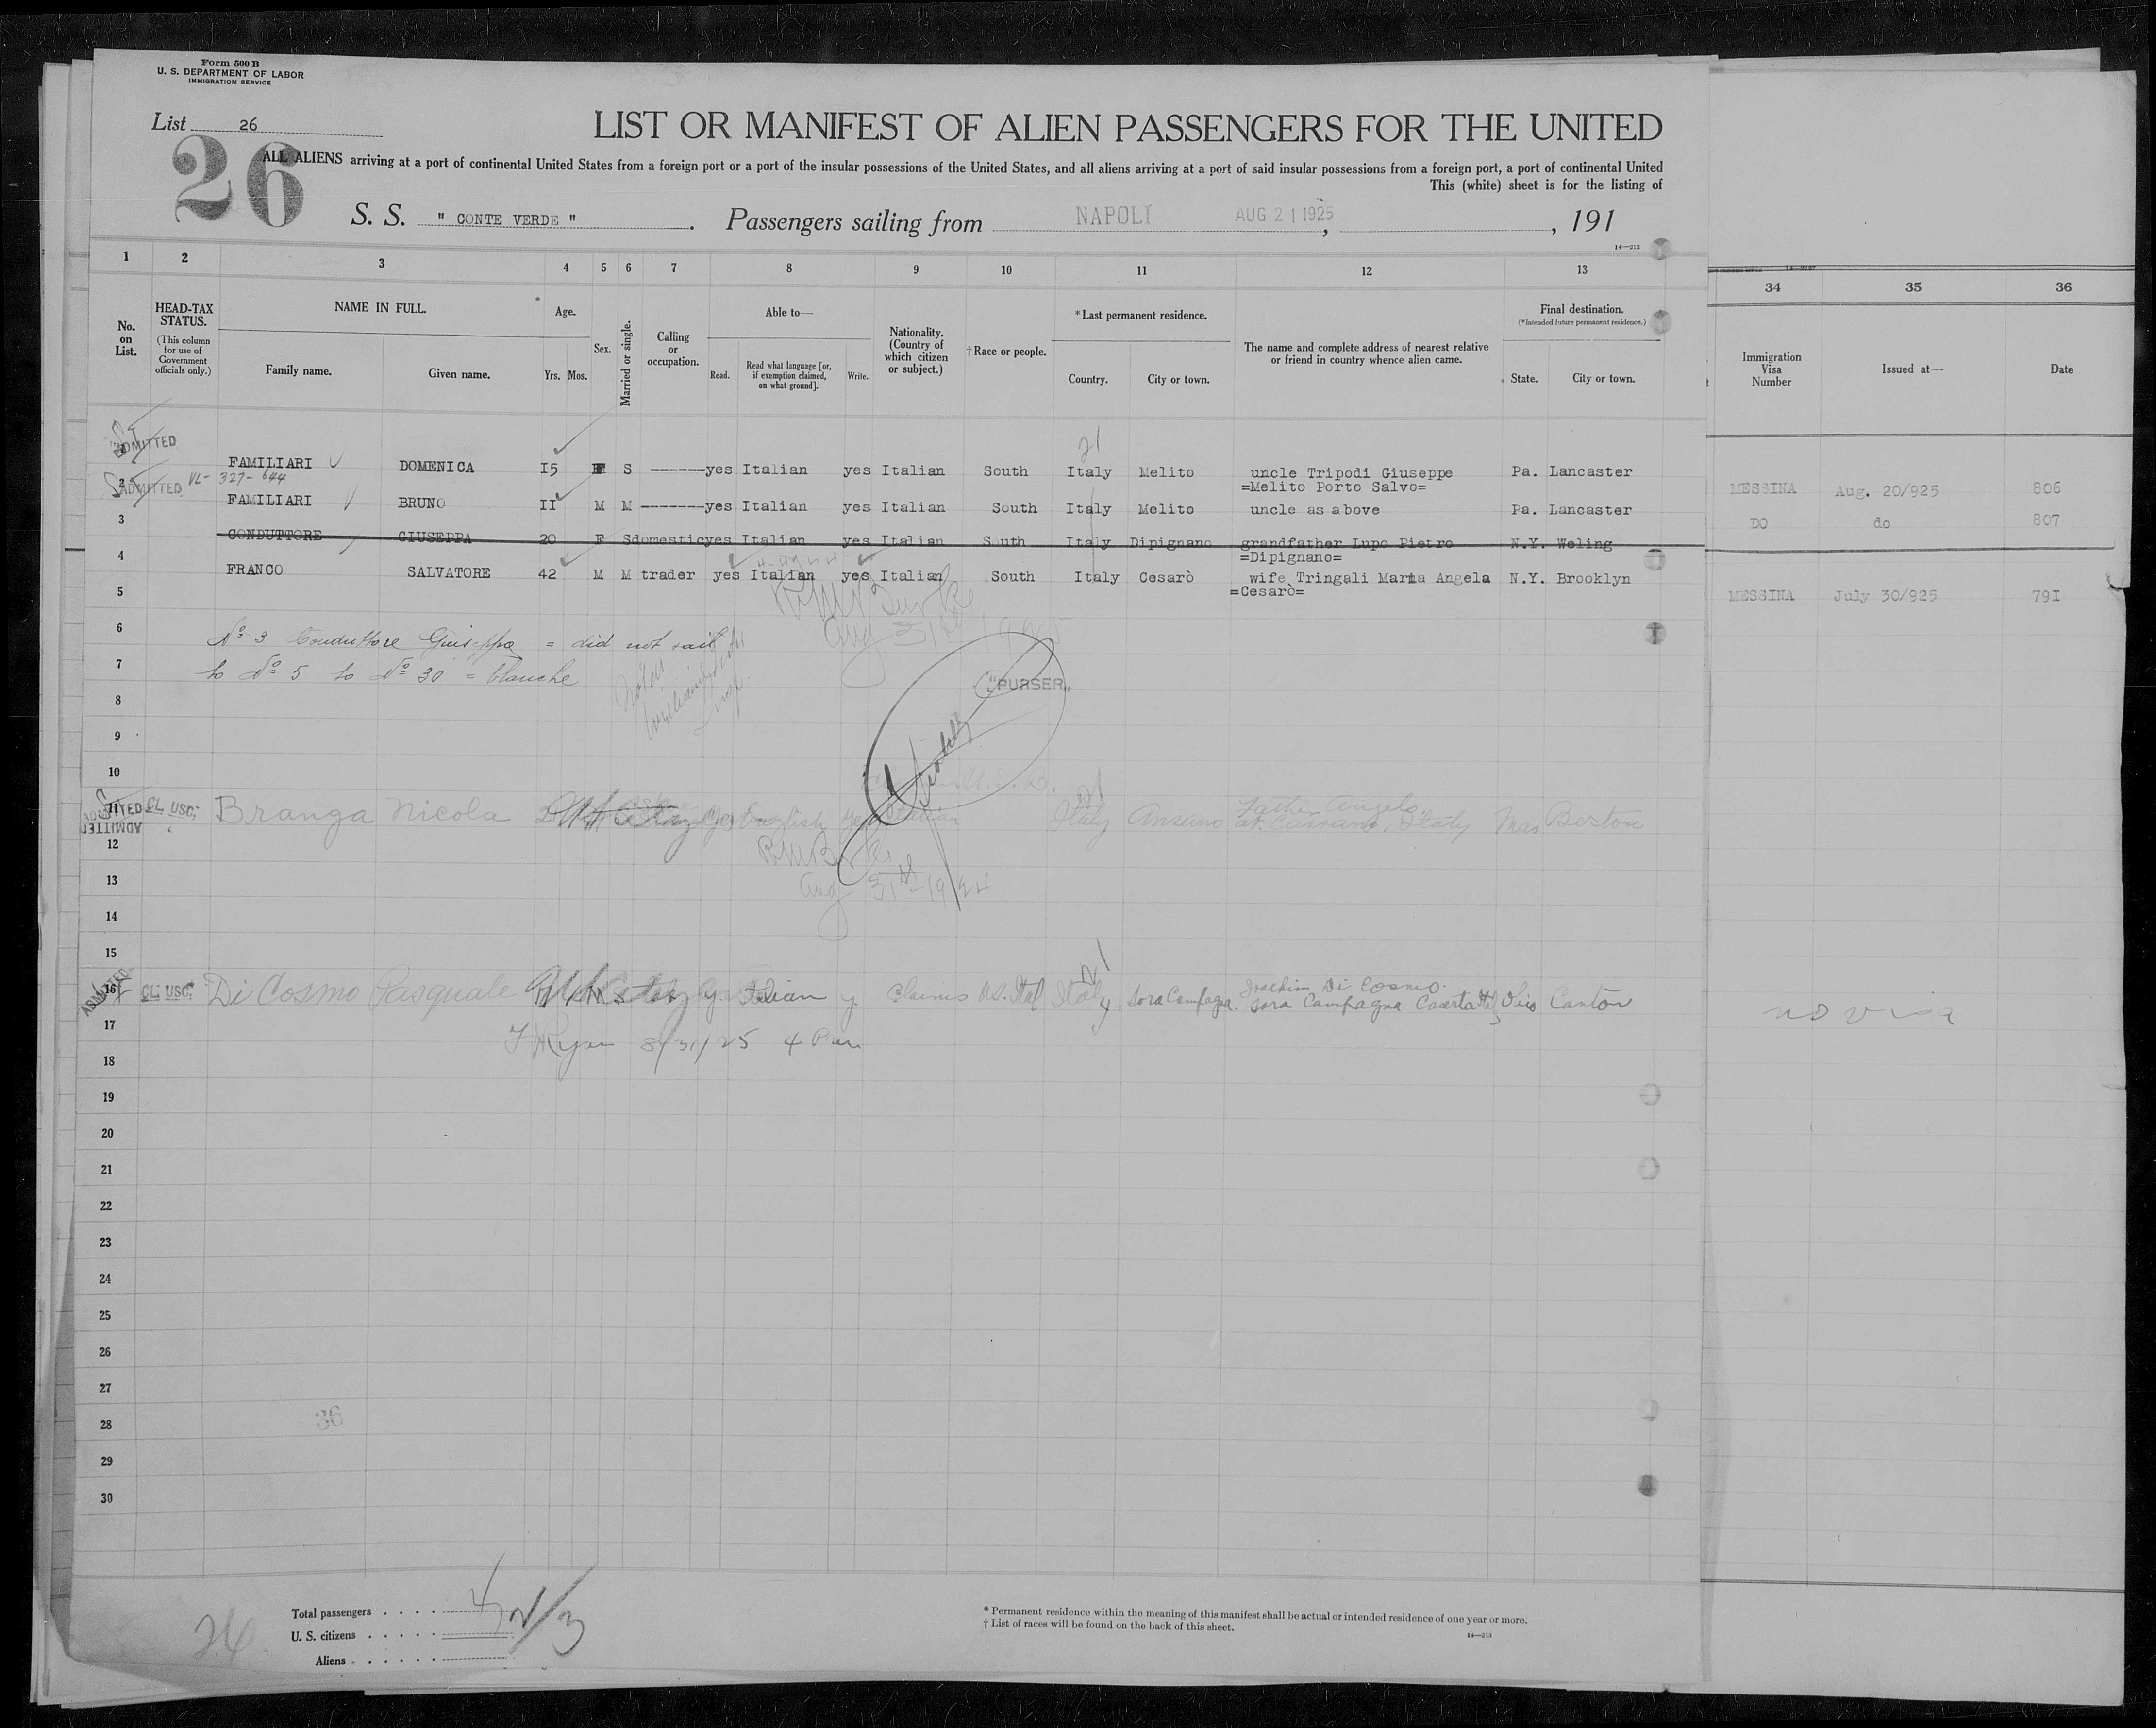 Form 500 B
U. S. DEPARTMENT OF LABOR
IMMIGRATION SERVICE
List 26
26
LIST OR MANIFEST OF ALIEN PASSENGERS FOR THE UNITED
ALL ALIENS arriving at a port of continental United States from a foreign port or a port of the insular possessions of the United States, and all aliens arriving at a port of said insular possessions from a foreign port, a port of continental United
This (white) sheet is for the listing of
S. S. " CONTE VERDE ". Passengers sailing from NAPOLI AUG 21 1925, , 191
14—213
1 2 3 4 5 6 7 8 9 10 11 12 13 34 35 36
No. on List.
HEAD-TAX STATUS.
(This column for use of Government officials only.)
NAME IN FULL.
Family name. Given name.
Age.
Yrs. Mos.
Sex.
Married or single.
Calling or occupation.
Able to—
Read. Read what language [or, if exemption claimed, on what ground]. Write.
Nationality. (Country of which citizen or subject.)
†Race or people.
*Last permanent residence.
Country. City or town.
The name and complete address of nearest relative or friend in country whence alien came.
Final destination.
(*Intended future permanent residence.)
State. City or town.
Immigration Visa Number
Issued at—
Date
ADMITTED
FAMILIARI DOMENICA 15 F S ------yes Italian yes Italian South Italy Melito uncle Tripodi Giuseppe Pa. Lancaster
=Melito Porto Salvo=
MESSINA Aug. 20/925 806
2 ADMITTED VL- 327-644
FAMILIARI BRUNO II M M -------yes Italian yes Italian South Italy Melito uncle as above Pa. Lancaster
DO do 807
3
CONDUTTORE GIUSEPPA 20 F Sdomesticyes Italian yes Italian South Italy Dipignano grandfather Lupo Pietro N.Y. Weling
=Dipignano=
4
FRANCO SALVATORE 42 M M trader yes Italian yes Italian South Italy Cesarò wife Tringali Maria Angela N.Y. Brooklyn
=Cesarò=
MESSINA July 30/925 791
5
6
Nº 3 Conduttore Giuseppa = did not sail
7
to Nº 5 to Nº 30 = blanche
"PURSER"
8
9
10
11 ADMITTED CL USC. Branga Nicola yes English yes Italian Italy Father Angelo Mas Boston
ADMITTED
at Cassano, Italy
12
Aug 31st 1924
13
14
15
16 ADMITTED CL USC. Di Cosmo Pasquale M S y Italian y. Claims U.S. Ital Italy Sora Campagna. Joachim Di Cosmo. Ohio Canton
Sora Campagna Caserta
no visa
17
Ryan 8/31/25 4 Pm
18
19
20
21
22
23
24
25
26
27
28
36
29
30
26
Total passengers . . . .
U. S. citizens . . . . .
Aliens . . . . . .
* Permanent residence within the meaning of this manifest shall be actual or intended residence of one year or more.
† List of races will be found on the back of this sheet.
14—213